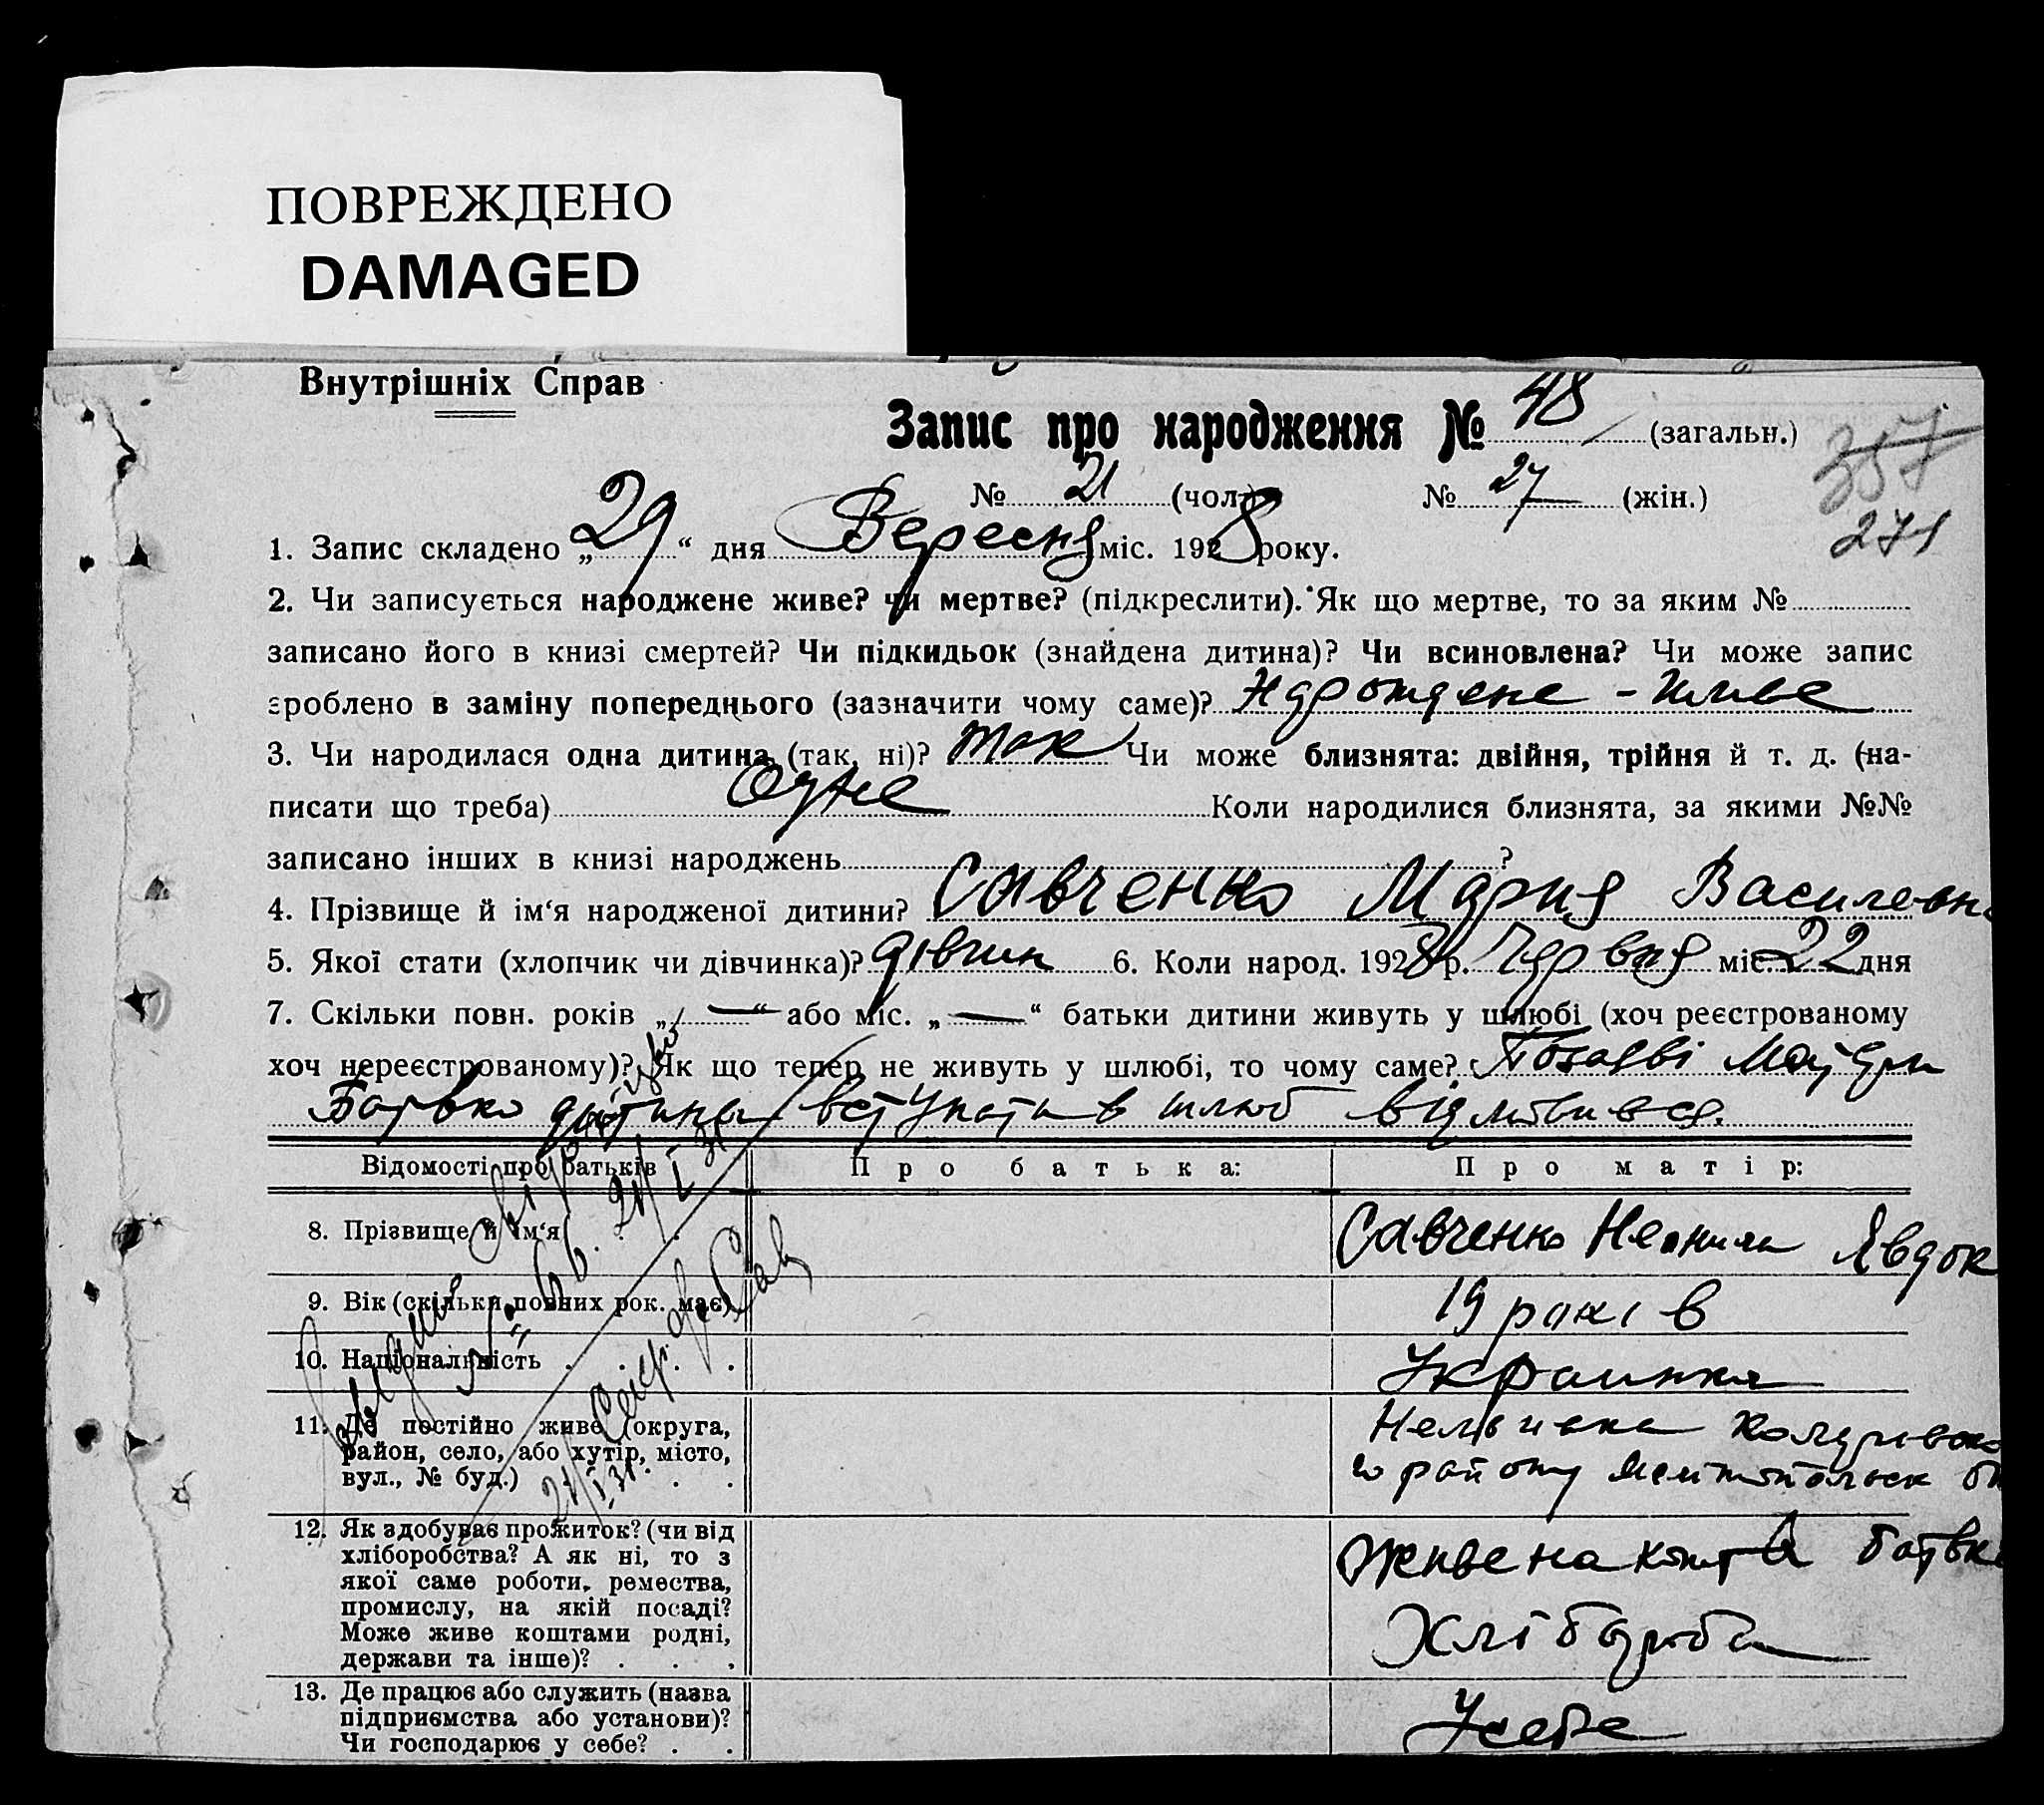 ПОВРЕЖДЕНО
DAMAGED
Внутрішніх Справ
Запис про народження № 48 (загальн.)
357
№ 21 (чол.) № 27 (жін.)
271
1. Запис складено „29“ дня Вересня міс. 1928 року.
2. Чи записується народжене живе? чи мертве? (підкреслити). Як що мертве, то за яким №
записано його в книзі смертей? Чи підкидьок (знайдена дитина)? Чи всиновлена? Чи може запис
зроблено в заміну попереднього (зазначити чому саме)? Нарождене - живе
3. Чи народилася одна дитина (так, ні)? так Чи може близнята: двійня, трійня й т. д. (на-
писати що треба) Одне Коли народилися близнята, за якими №№
записано інших в книзі народжень ?
4. Прізвище й ім‘я народженої дитини? Савченко Мария Василевн
5. Якої стати (хлопчик чи дівчинка)? дівчин 6. Коли народ. 1928 р. Червня міс. 22 дня
7. Скільки повн. років „—“ або міс. „—“ батьки дитини живуть у шлюбі (хоч реєстрованому
хоч нереєстрованому)? Як що тепер не живуть у шлюбі, то чому саме?
Батько дитини вступати в шлюб відмовився.
Відомості про батьків Про батька: Про матір:
8. Прізвище й ім‘я Савченко Явдок
9. Вік (скільки повних рок. має) 19 років
10. Національність Украинка
11. Де постійно живе (округа,
район, село, або хутір, місто,
вул., № буд.)
району
12. Як здобуває прожиток? (чи від
хліборобства? А як ні, то з
якої саме роботи, ремества,
промислу, на якій посаді?
Може живе коштами родні,
держави та інше)?
Живе на кошта батьк
Хлібороба
13. Де працює або служить (назва
підприємства або установи)?
Чи господарює у себе?
У себе